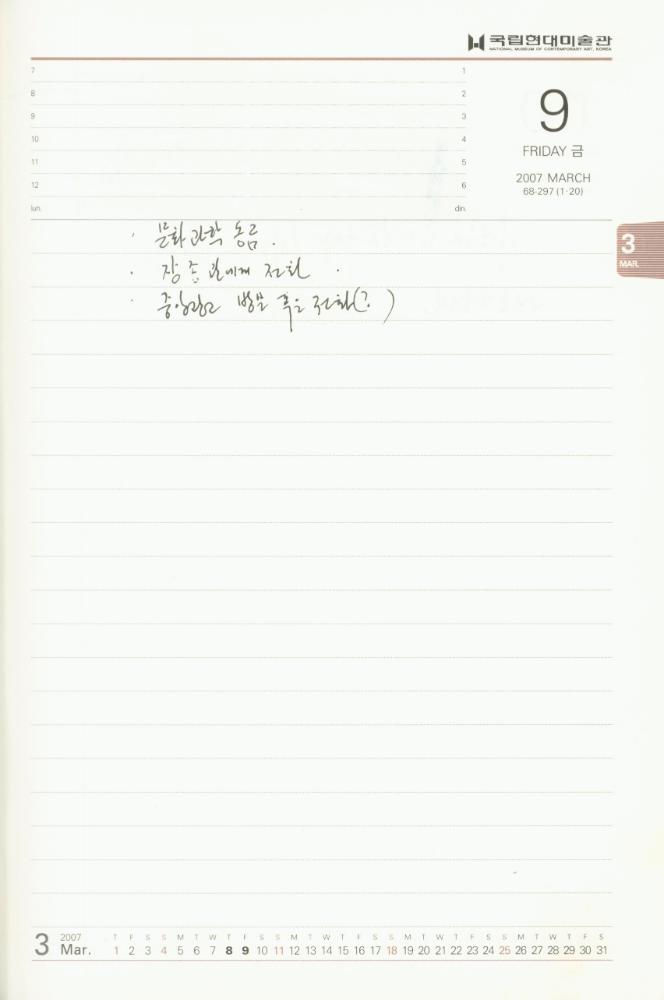 국립현대미술관
NATIONAL MUSEUM OF CONTEMPORARY ART, KOREA
7 1
8 2
9 3
10 4
11 5
12 6
lun. din.
9
FRIDAY 금
2007 MARCH
68-297 (1·20)
3
MAR.
· 문화과학
· 장 에게 전화 .
· 방문 후 전화(?)
3 2007 Mar.
T F S S M T W T F S S M T W T F S S M T W T F S S M T W T F S
1 2 3 4 5 6 7 8 9 10 11 12 13 14 15 16 17 18 19 20 21 22 23 24 25 26 27 28 29 30 31